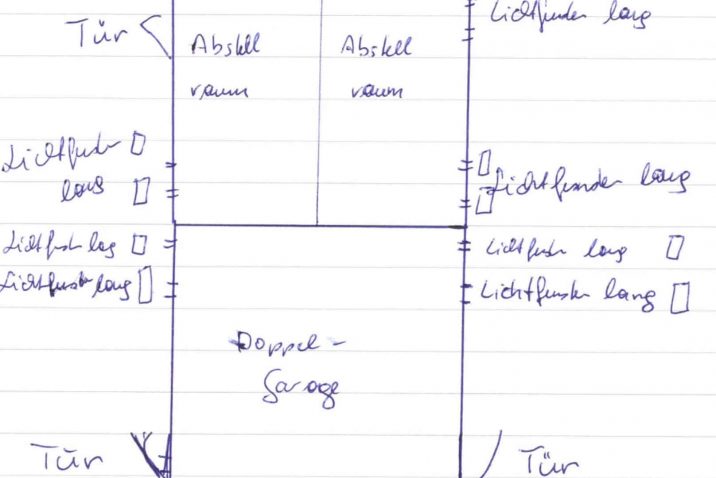 Lichtfenster lang
Tür
Abstell
raum
Abstell
raum
Lichtfenster
lang
Lichtfenster lang
Lichtfenster lang
Lichtfenster lang
Lichtfenster lang
Lichtfenster lang
Doppel-
Garage
Tür
Tür